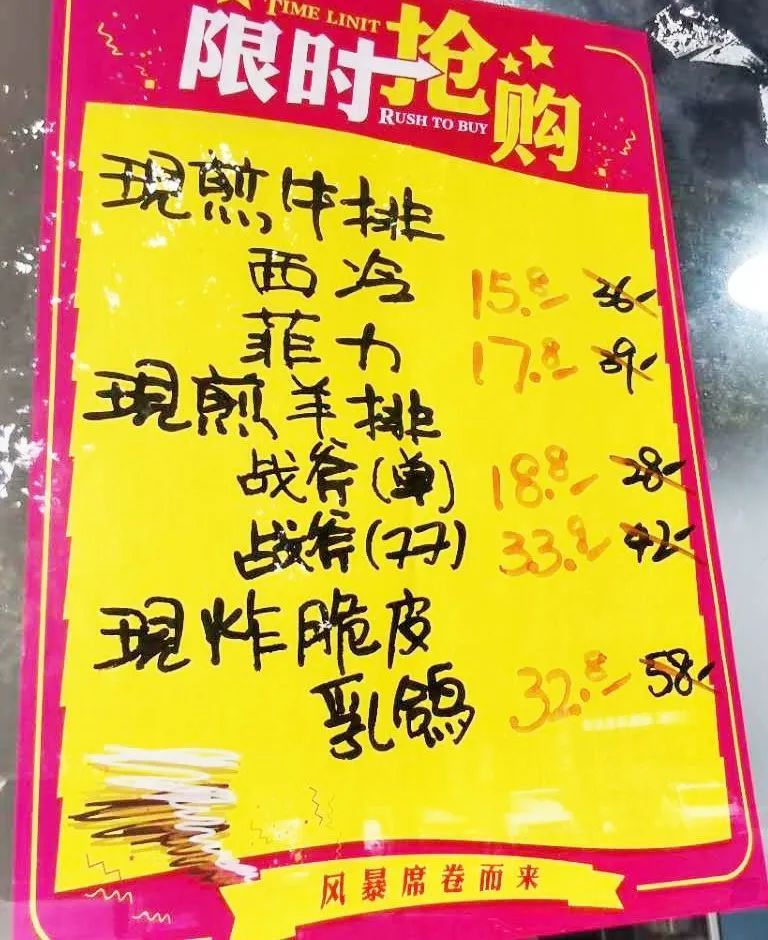 TIME LINIT
限时抢购
RUSH TO BUY
現煎牛排
西冷 15.8 36
菲力 17.8 39
現煎羊排
战斧(单) 18.8 28
战斧(双) 33.8 42
現炸脆皮
乳鸽 32.8 58
风暴席卷而来